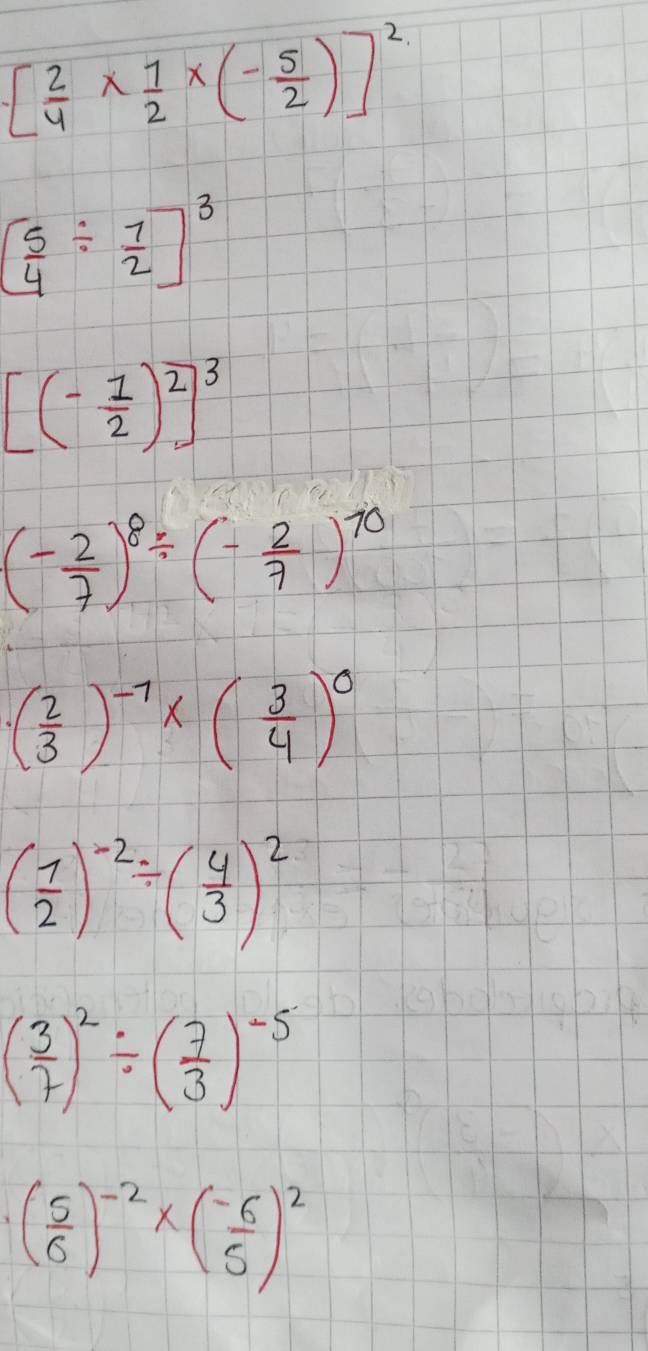 [2/4 × 1/2 × (-5/2)]^2.
[5/4 ÷ 1/2]^3
[(-1/2)^2]^3
(-2/7)^8 ÷ (-2/7)^10
(2/3)^-1 × (3/4)^0
(1/2)^-2 ÷ (4/3)^2
(3/7)^2 ÷ (7/3)^-5
(5/6)^-2 × (-6/5)^2